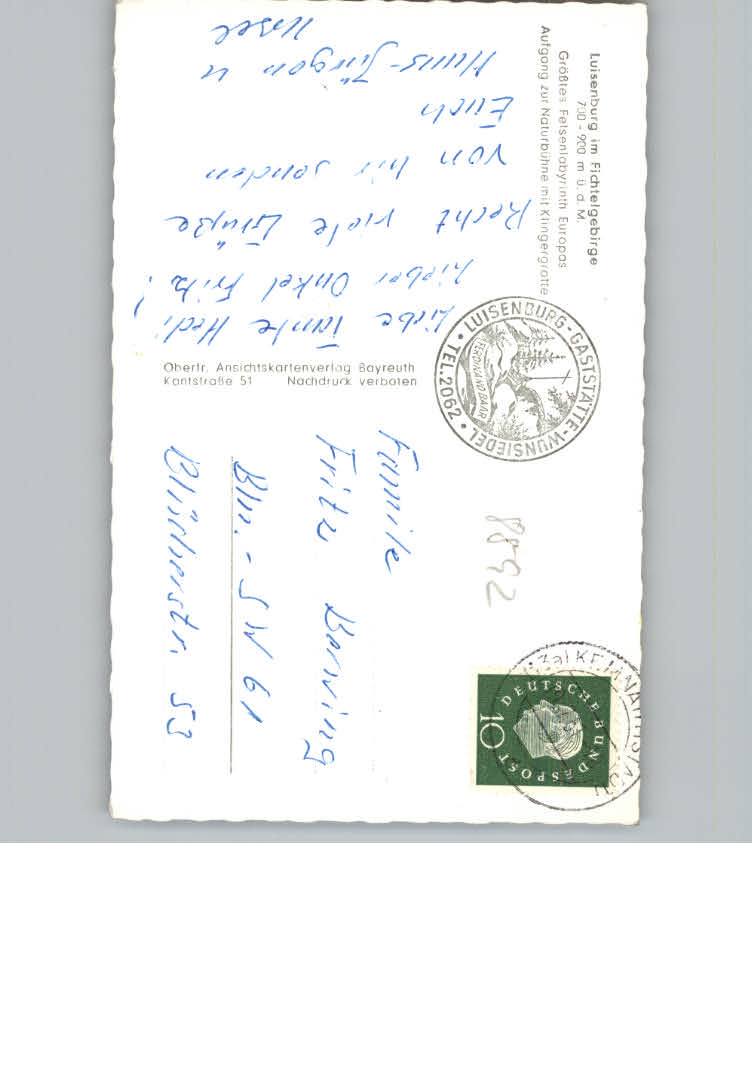 Luisenburg im Fichtelgebirge
700 - 900 m ü. d. M.
Größtes Felsenlabyrinth Europas
Aufgang zur Naturbühne mit Klingergrotte
Liebe Tante Hedi
Lieber Onkel Fritz!
Recht viele Grüße
von hir senden
Euch
Hans-Jürgen u
Ursel
Oberfr. Ansichtskartenverlag Bayreuth
Kantstraße 51 Nachdruck verboten
LUISENBURG-GASTSTÄTTE-WUNSIEDEL
TEL. 2062
FERDINAND BAAR
8892
DEUTSCHE BUNDESPOST
10
Familie
Fritz Berwing
Bln. - SW 61
Blücherstr. 53